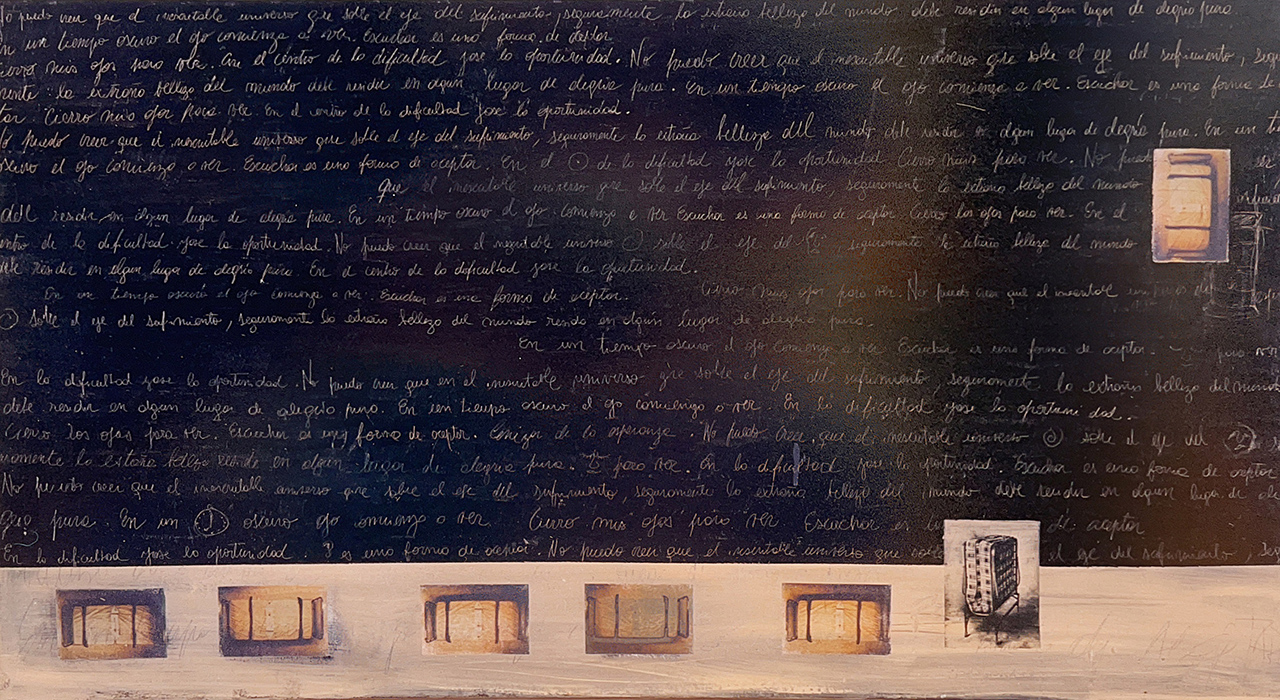 No puedo creer que el inescrutable universo gire sobre el eje del sufrimiento, seguramente la extraña belleza del mundo debe residir en algún lugar de alegría pura
En un tiempo oscuro el ojo comienza a ver. Escuchar es una forma de aceptar
Cierro mis ojos para ver. En el centro de la dificultad yace la oportunidad. No puedo creer que el inescrutable universo gire sobre el eje del sufrimiento,
la extraña belleza del mundo debe residir en algún lugar de alegría pura. En un tiempo oscuro el ojo comienza a ver. Escuchar es una forma de
tar Cierro mis ojos para ver. En el centro de la dificultad yace la oportunidad.
No puedo creer que el inescrutable universo gire sobre el eje del sufrimiento, seguramente la extraña belleza del mundo debe residir en algún lugar de alegría pura. En un
oscuro el ojo comienza a ver. Escuchar es una forma de aceptar. En el de la dificultad yace la oportunidad Cierro para ver. No
Que el inescrutable universo gire sobre el eje del sufrimiento, seguramente la extraña belleza del mundo
debe residir en algún lugar de alegría pura. En un tiempo oscuro el ojo comienza a ver Escuchar es una forma de aceptar Cierro los ojos para ver. En el
centro de la dificultad yace la oportunidad. No puedo creer que el universo sobre el eje del seguramente la extraña belleza del mundo
debe residir en algún lugar de alegría pura. En el centro de la dificultad yace la oportunidad.
En un tiempo oscuro el ojo comienza a ver. Escuchar es una forma de aceptar. Cierro mis ojos para ver. No puedo creer que el inescrutable
sobre el eje del sufrimiento, seguramente la extraña belleza del mundo en algún lugar de alegría pura.
En un tiempo oscuro el ojo comienza a ver Escuchar es una forma de aceptar.
En la dificultad yace la oportunidad. No puedo creer que en el inescrutable universo gire sobre el eje del sufrimiento, seguramente la extraña belleza del mundo
debe residir en algún lugar de alegría pura. En un tiempo oscuro el ojo comienza a ver. En la dificultad yace la oportunidad.
Cierro los ojos para ver. Escuchar es una forma de aceptar. de la esperanza. No puedo creer que el inescrutable universo sobre el eje del
la extraña belleza reside en algún lugar de alegría pura. para ver. En la dificultad yace la oportunidad. Escuchar es una forma de aceptar
No puedo creer que el inescrutable universo gire sobre el eje del sufrimiento, seguramente la extraña belleza del mundo debe residir en algún lugar de
pura. En un oscuro ojo comienza a ver. Cierro mis ojos para ver Escuchar es de aceptar
En la dificultad yace la oportunidad. es una forma de aceptar. No puedo creer que el inescrutable universo que el eje del sufrimiento,